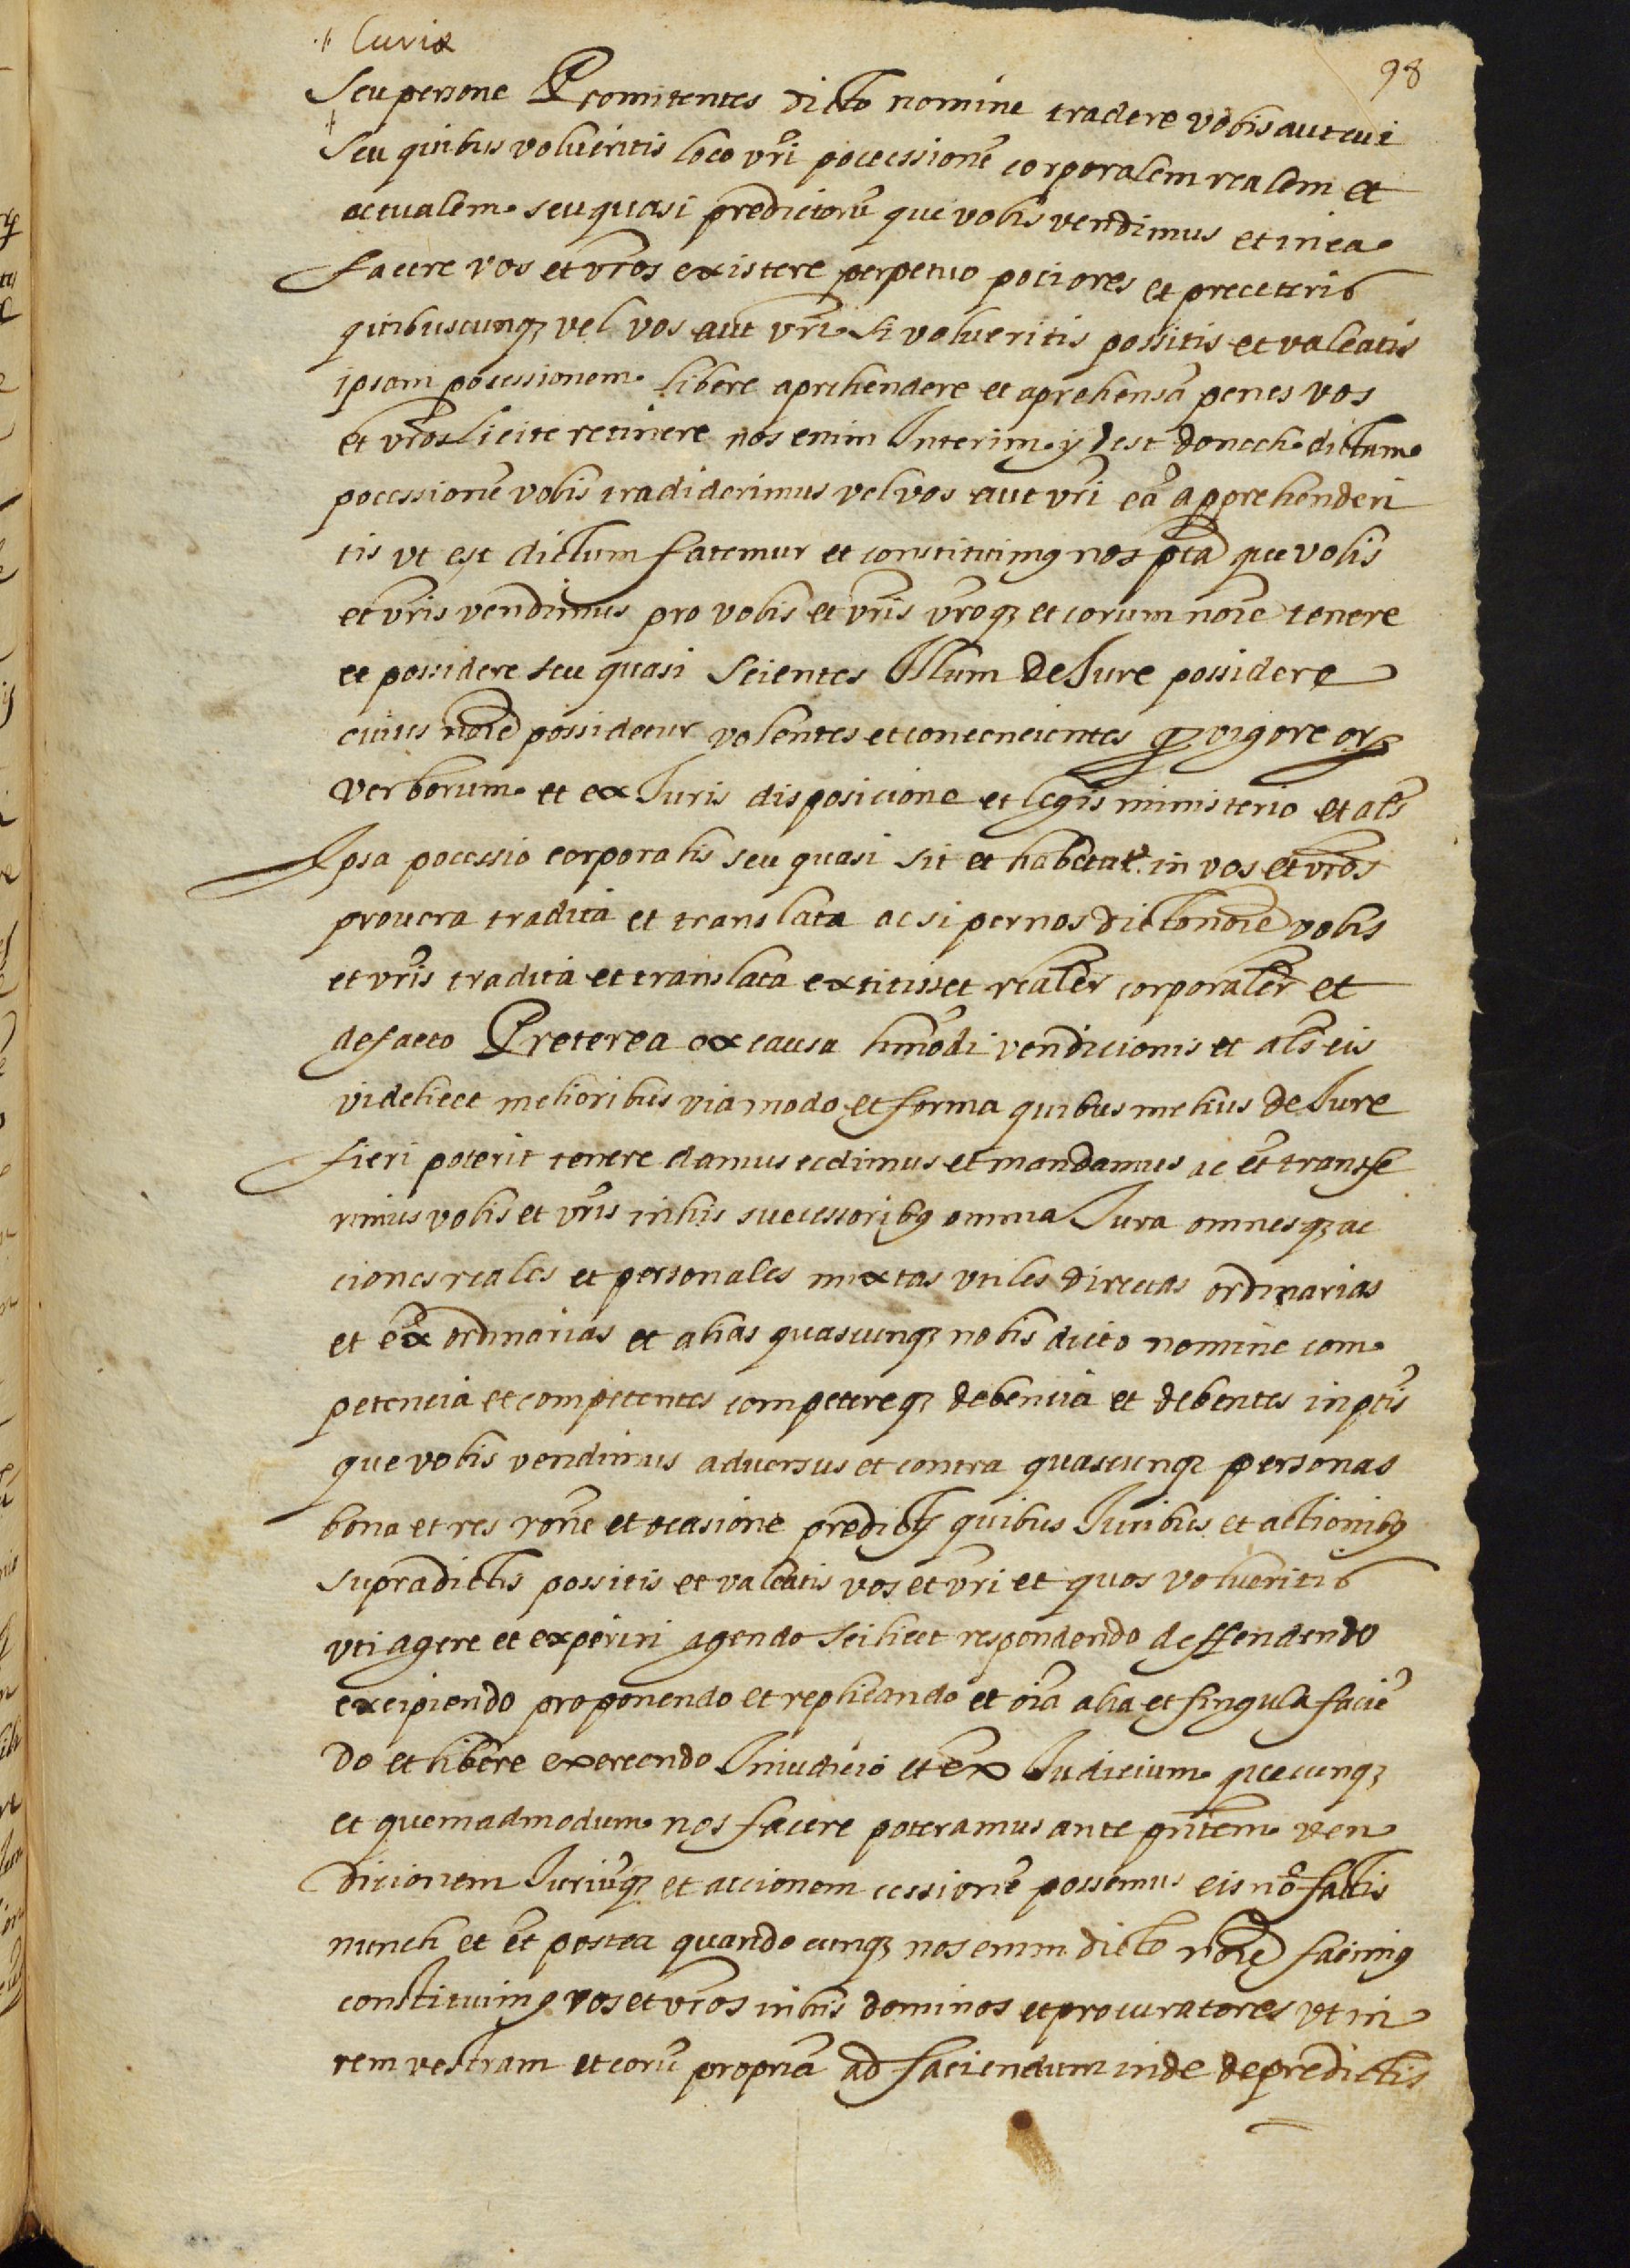 Curiæ
98
Seu persone Promitentes dicto nomine tradere vobis aut cui
Seu quibus volueritis loco vr̃i pocessionẽ corporalem realem et
actualem seu quasi predictorũ que vobis vendimus et in ea
facere vos et vr̃os existere perpetuo pociores et preceteris
quibuscunqꝫ vel vos aut vr̃i si volueritis possitis et valeatis
ipsam pocessionem libere aprehendere et aprehensã penes vos
et vr̃os licite retinere nos enim Interim ydest donech dictam
pocessionẽ vobis tradiderimus vel vos aut vr̃i eã apprehenderi
tis vt est dictum fatemur et constituimꝰ nos pt̃a que vobis
et vr̃is vendimus pro vobis et vr̃is vr̃oqꝫ et eorum nõie tenere
et possidere seu quasi Scientes Illum de Jure possidere
cuius nõie possidetur volentes et consencientes qꝫ vigore orꝫ
verborum et ex Juris disposicione et legis ministerio et als̃
Ipsa pocessio corporalis seu quasi sit et habeatur in vos et vr̃os
pro vera tradita et translata ac si per nos dicto nõie vobis
et vr̃is tradita et translata extitisset realer̃ corporaler̃ et
de facto Preterea ex causa hm̃odi vendicionis et als̃ eis
videlicet melioribus via modo et forma quibus melius de Jure
fieri poterit tenere damus cedimus et mandamus ac et̃ transfe
rimus vobis et vr̃is in his successoribꝰ omnia Jura omnesqꝫ ac
ciones reales et personales mixtas vtiles directas ordinarias
et ex̃ ordinarias et alias quascunqꝫ nobis dicto nomine com
petencia et competentes competereqꝫ debencia et debentes in pt̃is
que vobis vendimus adversus et contra quascunqꝫ personas
bona et res rõne et ocasione predictꝫ quibus Juribus et actionibꝰ
supradictis possitis et valeatis vos et vr̃i et quos volueritis
vti agere et experiri agendo scilicet respondendo deffendendo
excipiendo proponendo et replicando et oĩa alia et singula faciẽ
do et libere exercendo Iniudicio et ex Judicium quecunqꝫ
et quemadmodum nos facere poteramus ante pn̄tem ven
dicionem Juriũqꝫ et accionem cessionẽ possemus eis nõ factis
nunch et et̃ postea quandocunqꝫ nos enim dicto nõie facimꝰ
constituimꝰ vos et vr̃os in his dominos et procuratores vt in
rem vestram et eorũ propriã ad faciendum inde de predictis